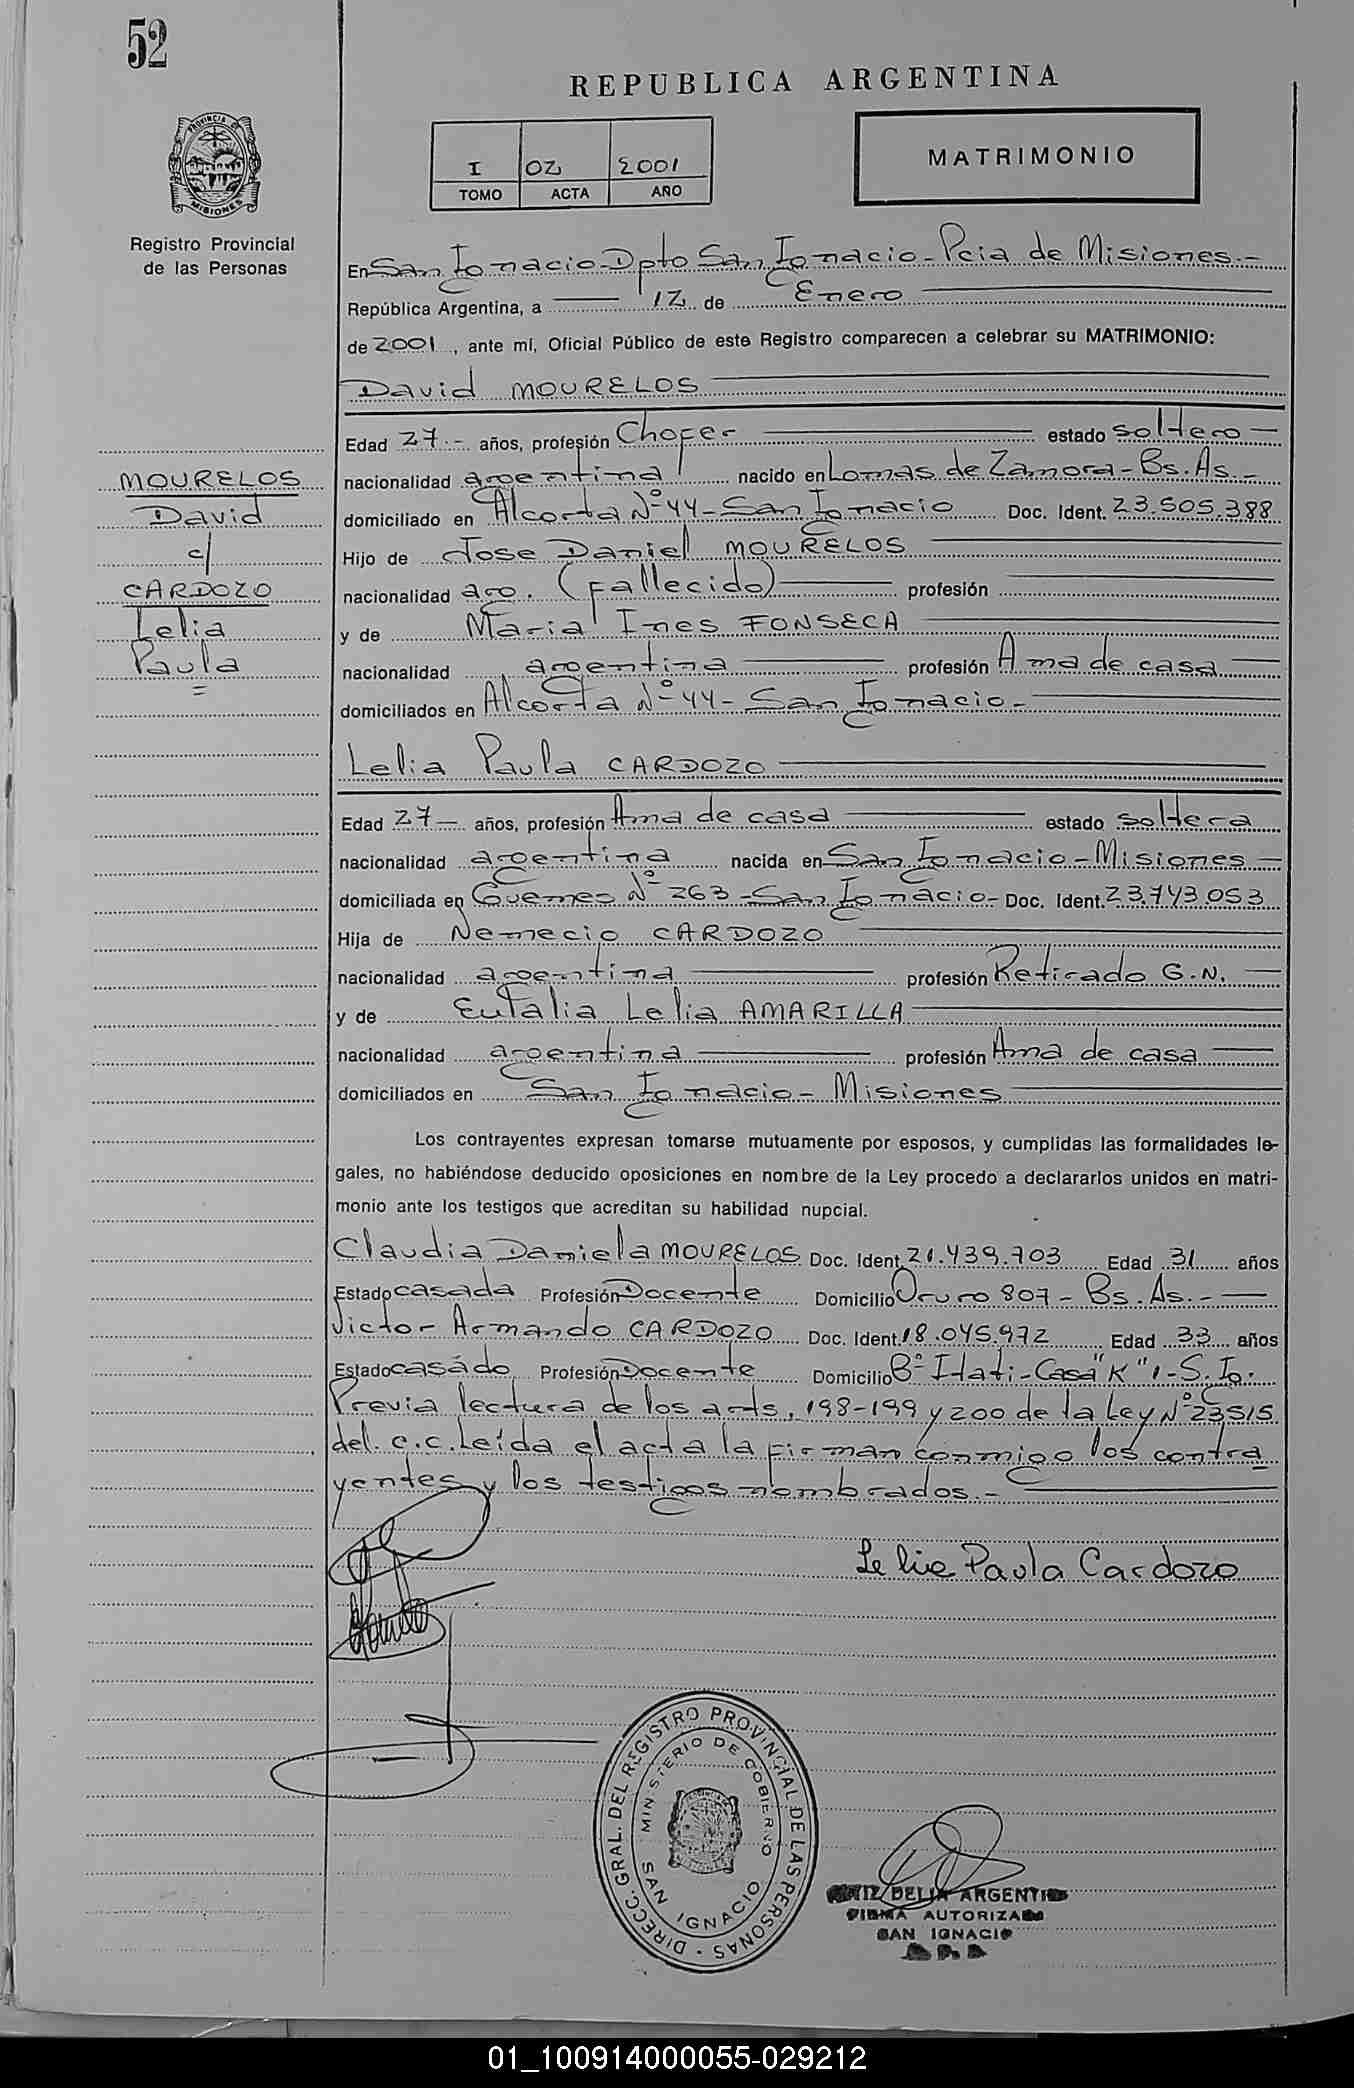 52
REPUBLICA ARGENTINA
I 02 2001
TOMO ACTA AÑO
MATRIMONIO
PROVINCIA DE
MISIONES
Registro Provincial
de las Personas
En San Ignacio - Dpto San Ignacio - Pcia de Misiones.-
República Argentina, a 12 de Enero
de 2001, ante mí, Oficial Público de este Registro comparecen a celebrar su MATRIMONIO:
David MOURELOS
Edad 27.- años, profesión Chofer estado soltero
nacionalidad argentina nacido en Lomas de Zamora - Bs. As.-
domiciliado en Alcorta Nº 44 - San Ignacio Doc. Ident. 23.505.388
Hijo de Jose Daniel MOURELOS
nacionalidad arg. (fallecido) profesión
y de Maria Ines FONSECA
nacionalidad argentina profesión Ama de casa
domiciliados en Alcorta Nº 44 - San Ignacio -
MOURELOS
David
c/
CARDOZO
Lelia
Paula
=
Lelia Paula CARDOZO
Edad 27 - años, profesión Ama de casa estado soltera
nacionalidad argentina nacida en San Ignacio - Misiones -
domiciliada en Guemes Nº 263 - San Ignacio - Doc. Ident. 23.743.053
Hija de Nemecio CARDOZO
nacionalidad argentina profesión Retirado G.N.
y de Eutalia Lelia AMARILLA
nacionalidad argentina profesión Ama de casa
domiciliados en San Ignacio - Misiones
Los contrayentes expresan tomarse mutuamente por esposos, y cumplidas las formalidades le-
gales, no habiéndose deducido oposiciones en nombre de la Ley procedo a declararlos unidos en matri-
monio ante los testigos que acreditan su habilidad nupcial.
Claudia Daniela MOURELOS Doc. Ident. 21.439.703 Edad 31 años
Estado casada Profesión Docente Domicilio Oruro 807 - Bs. As. -
Victor Armando CARDOZO Doc. Ident. 18.045.972 Edad 33 años
Estado casado Profesión Docente Domicilio Bº Itati - Casa "K" 1 - S. Ig.
Previa lectura de los arts. 198-199 y 200 de la Ley Nº 23515
del C.C. Leída el acta la firman conmigo los contra
yentes y los testigos nombrados.-
Lelia Paula Cardozo
DIRECC. GRAL. DEL REGISTRO PROVINCIAL DE LAS PERSONAS
MINISTERIO DE GOBIERNO
SAN IGNACIO
DELIA ARGENTINA
FIRMA AUTORIZADA
SAN IGNACIO
01_100914000055-029212